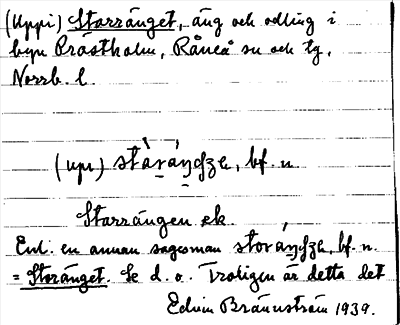 (Uppi) Starränget, äng och odling i
byn Prästholm, Råneå sn och tg,
Norrb. l.
(upi) bf. n
Starrängen ek.
Enl. en annan sagesman bf. n.
= Storänget. Se d. o. Troligen är detta det
Edvin Brännström 1939.